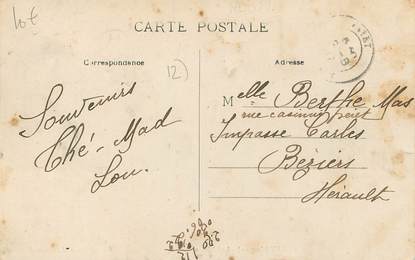 10 €
CARTE POSTALE
Correspondance
12)
Adresse
Souvenirs
Thé - Mad
Lou.
Melle Berthe Mas
rue casimir peret
Impasse Carles
Béziers
Hérault